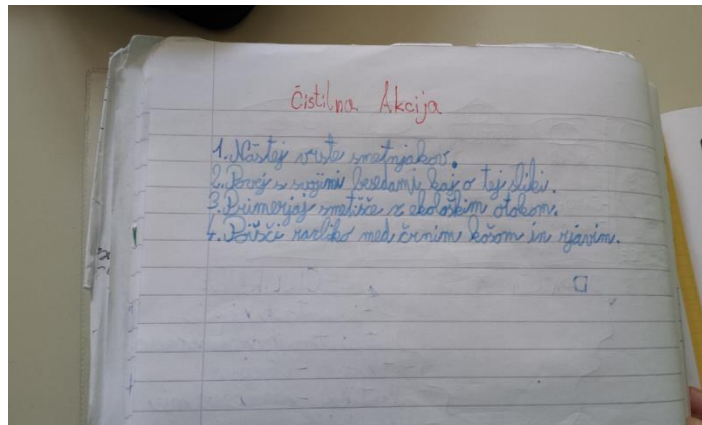 Čistilna Akcija
1. Naštej vrste smetnjakov.
2. Povej s svojimi besedami, kaj o tej sliki.
3. Primerjaj smetišče z ekološkim otokom.
4. Poišči razliko med črnim košom in rjavim.